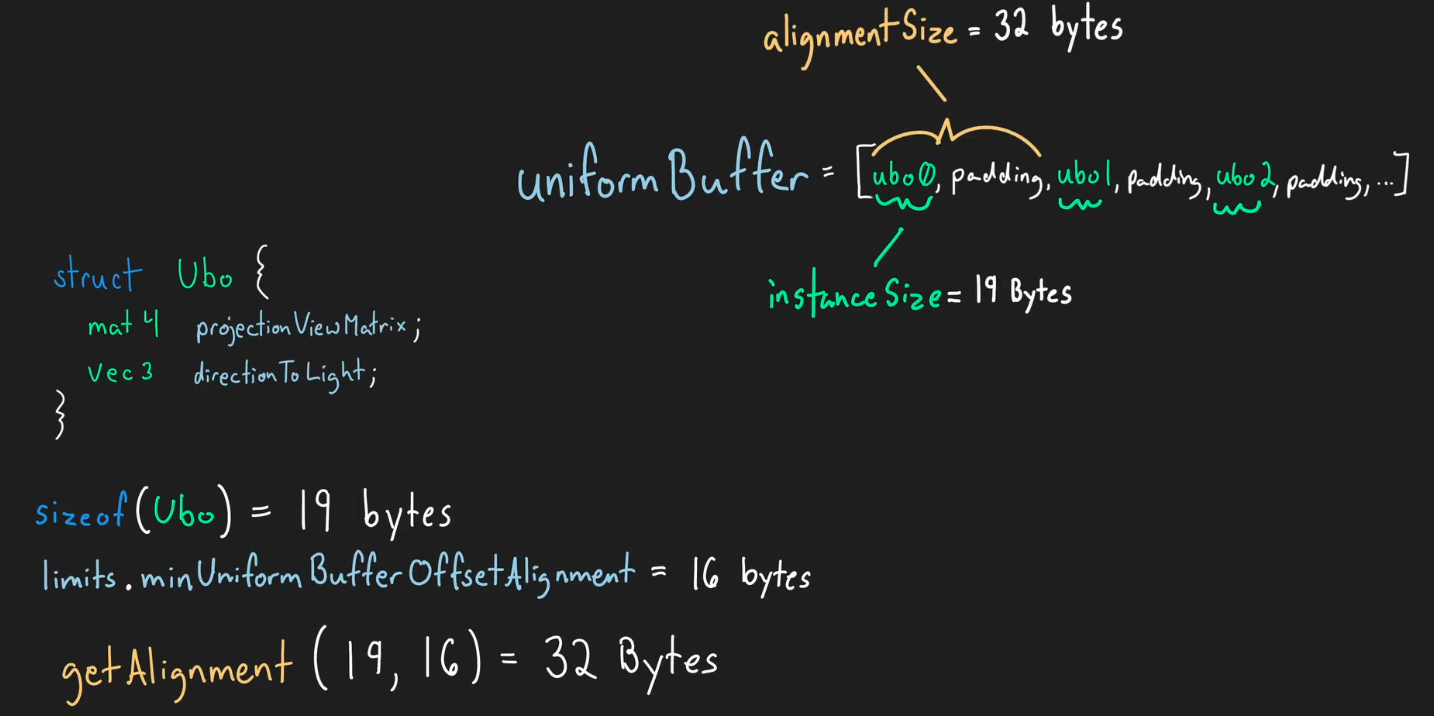 alignmentSize = 32 bytes
uniformBuffer = [ubo0, padding, ubo1, padding, ubo2, padding, ...]
instanceSize = 19 Bytes
struct Ubo {
mat4 projectionViewMatrix;
vec3 directionToLight;
}
sizeof(Ubo) = 19 bytes
limits.minUniformBufferOffsetAlignment = 16 bytes
getAlignment (19, 16) = 32 Bytes